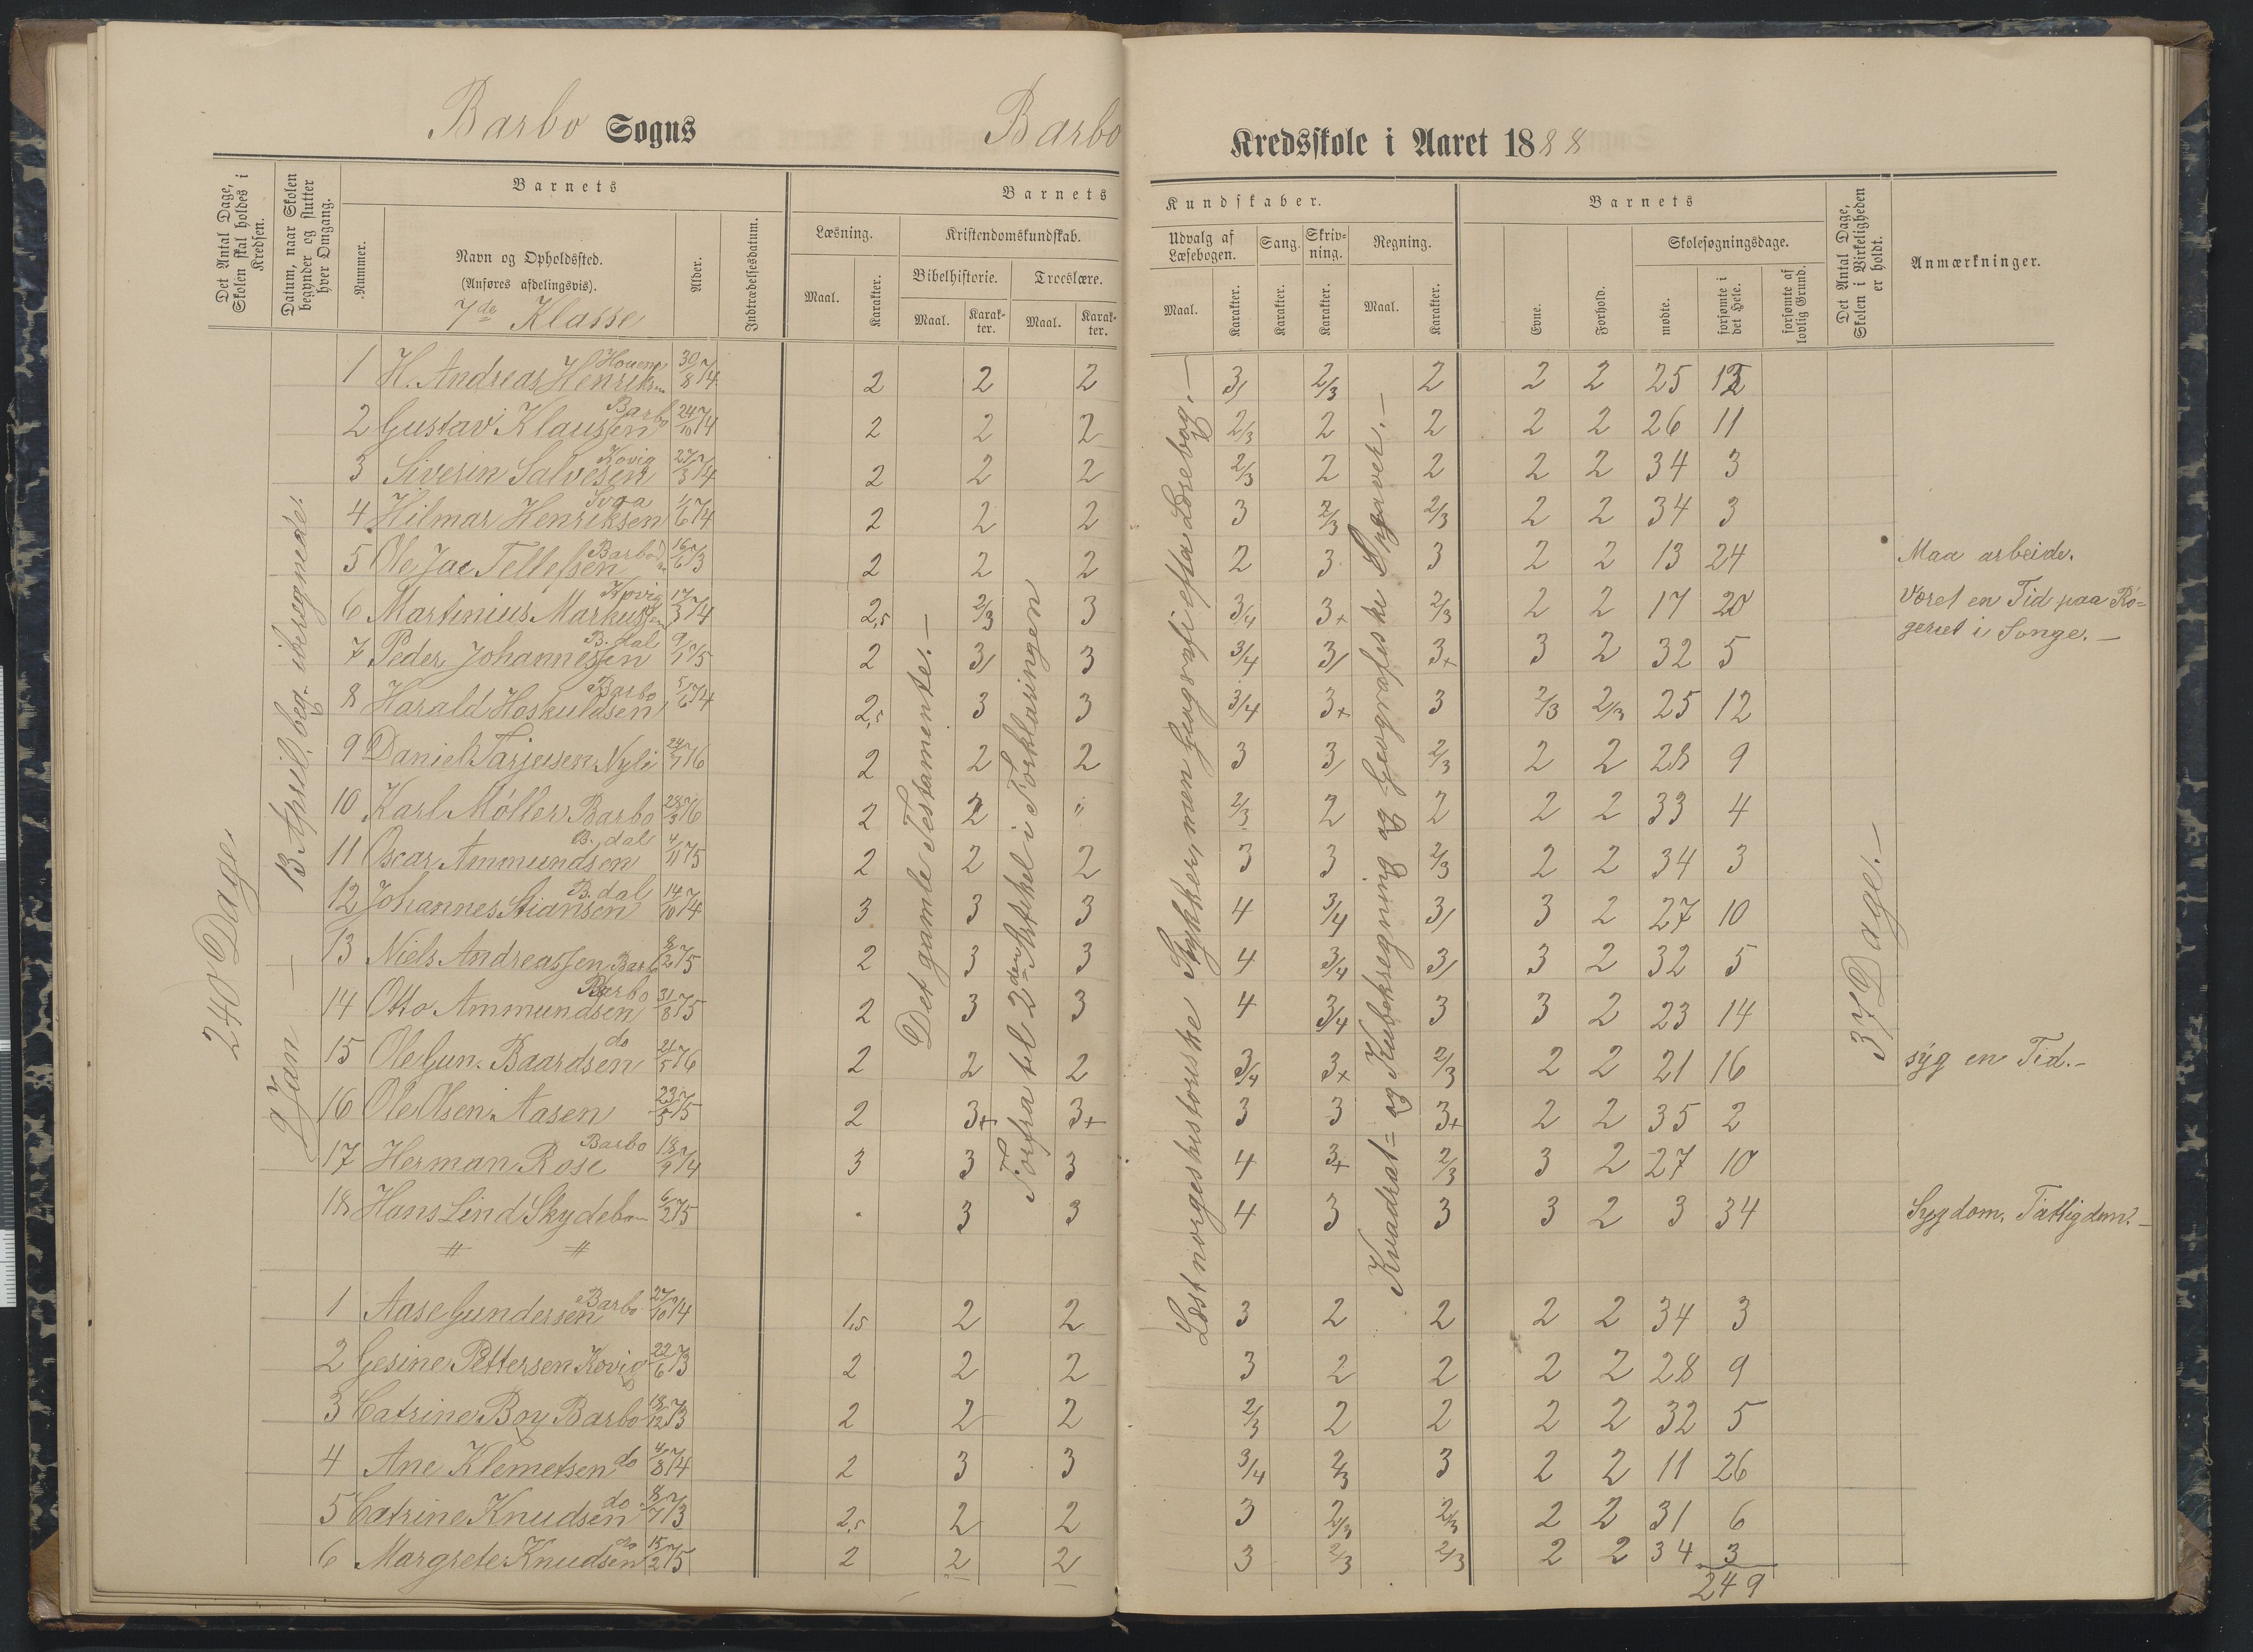 Barbo Sogns Barbo Kredsskole i Aaret 1888
Det Antal Dage, Skolen skal holdes i Kredsen.
Datum, naar Skolen begynder og slutter hver Omgang.
Barnets
Nummer.
Navn og Opholdssted.
(Anføres afdelingsvis).
7de Klasse
Alder.
Indtrædelsesdatum.
Barnets Kundskaber.
Læsning.
Maal.
Karakter.
Kristendomskundskab.
Bibelhistorie.
Maal.
Karakter.
Troeslære.
Maal.
Karakter.
Udvalg af Læsebogen.
Maal.
Karakter.
Sang.
Karakter.
Skrivning.
Karakter.
Regning.
Maal.
Karakter.
Barnets
Evne.
Forhold.
Skolesøgningsdage.
mødte.
forsømte i det Hele.
forsømte af lovlig Grund.
Det Antal Dage, Skolen i Virkeligheden er holdt.
Anmærkninger.
240 Dage.
9 Jan – 13 April. beg. iberegnede.
Det gamle Testamente. –
Forfra til 2den Artikkel i Forklaringen
Læst norgeshistoriske Stykker, men geografi efta Læsebog. –
Kvadrat= og Kubikregning og Geografiske Opgaver. –
37 Dage. –
1 H. Andreas Henriksen Houene 30/8 74 2 2 2 3/ 2/3 2 2 2 25 12
2 Gustav Klaussen Barbo 24/10 74 2 2 2 2/3 2 2 2 2 26 11
3 Siverin Salvesen Kovig 27/3 74 2 2 2 2/3 2 2 2 2 34 3
4 Hilmar Henriksen Svaa 1/6 74 2 2 2 3 2/3 2/3 2 2 34 3
5 Ole Jac Tellefsen Barbod 16/6 73 2 2 2 2 3 3 2 2 13 24 Maa arbeide.
6 Martinius Markussen Kovig 17/3 74 2,5 2/3 3 3/4 3+ 2/3 2 2 17 20 Været en Tid paa Rø=
geriet i Songe. –
7 Peder Johannessen B. dal 9/1 75 2 3/ 3 3/4 3/ 3+ 3 2 32 5
8 Harald Hoskuldsen Barbo 5/6 74 2,5 3 3 3/4 3+ 3 2/3 2/3 25 12
9 Daniel Tarjeisen Nyli 24/1 76 2 2 2 3 3/ 2/3 2 2 28 9
10 Karl Møller Barbo 28/3 76 2 2 " 2/3 2 2 2 2 33 4
11 Oscar Ammundsen B. dal 4/11 75 2 2 2 3 3 2/3 2 2 34 3
12 Johannes Stiansen B. dal 14/10 74 3 3 3 4 3/4 3/ 3 2 27 10
13 Niels Andreassen Barbo 8/12 75 2 3 3 4 3/4 3/ 3 2 32 5
14 Otto Ammundsen Barbo 31/8 75 2 3 3 4 3/4 3 3 2 23 14
15 Ole Gun. Baardsen do 21/5 76 2 2 2 3/4 3+ 2/3 2 2 21 16 syg en Tid. –
16 Ole Olsen Aasen 23/5 75 2 3+ 3+ 3 3 3+ 2 2 35 2
17 Herman Rose Barbo 18/9 74 3 3 3 4 3+ 2/3 3 2 27 10
18 Hans Lind Skydeban 6/2 75 . 3 3 4 3 3 3 2 3 34 Sygdom. Fattigdom. –
1 Aase Gundersen Barbo 27/10 74 1,5 2 2 3 2 2 2 2 34 3
2 Gesine Pettersen Kovig 22/6 73 2 2 2 3 2 2 2 2 28 9
3 Catrine Boy Barbo 18/12 73 2 2 2 2/3 2 2 2 2 32 5
4 Ane Klemetsen do 4/8 74 2 3 3 3/4 2/3 3 2 2 11 26
5 Catrine Knudsen do 8/7 73 2,5 2 2 3 2/3 2/3 2 2 31 6
6 Margrete Knudsen do 15/2 75 2 2 2 3 2/3 2/3 2 2 34 3
249